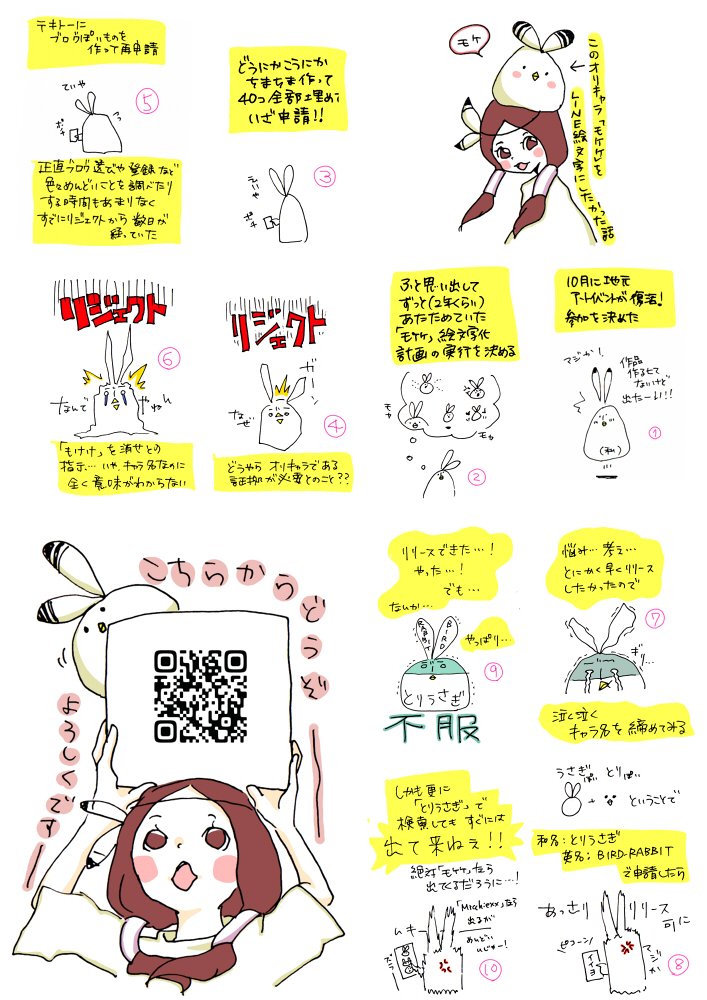 このオリキャラ「モケケ」を
LINE絵文字にしたかった話
モケ
10月に地元
アートイベントが復活!
参加を決めた
マジか!
作品
作るヒマ
ないけど
出たーい!!
(和)
①
ふと思い出して
ずっと(2年くらい)
あたためていた
「モケケ」絵文字化
計画の実行を決める
モヤ
モヤ
②
どうにかこうにか
ちまちま作って
40コ全部埋めて
いざ申請!!
えいや
ポチ
③
リジェクト
ガーン
なぜ
④
どうやらオリキャラである
証拠が必要とのこと??
テキトーに
ブログぽいものを
作って再申請
ていや
ポチ
⑤
正直ブログ選びや登録など
色々めんどいことを調べたり
する時間もあまりなく
すでにリジェクトから数日が
経っていた
リジェクト
⑥
なんで
やねん
「もけけ」を消せとの
指示…いや、キャラ名なのに
全く意味がわからない
悩み…考え…
とにかく早くリリース
したかったので
⑦
ギリ…
泣く泣く
キャラ名を締めてみる
うさぎっぽい
とりっぽい
+
ということで
和名:とりうさぎ
英名:BIRD-RABBIT
で申請したら
あっさり
リリース
可に
ピコーン!
イイヨ
マジか
⑧
リリースできた…!
やった…!
でも…
ないか…
やっぱり…
RABBIT
BIRD
⑨
とりうさぎ
不服
しかも更に
「とりうさぎ」で
検索しても すぐには
出て来ねぇ!!
絶対「モケケ」なら
出てくるだろうに…!
ムキー
「Micchiexx」なら
出るが
めんどい
んじゃー!
⑩
こちらからどうぞ
よろしくです